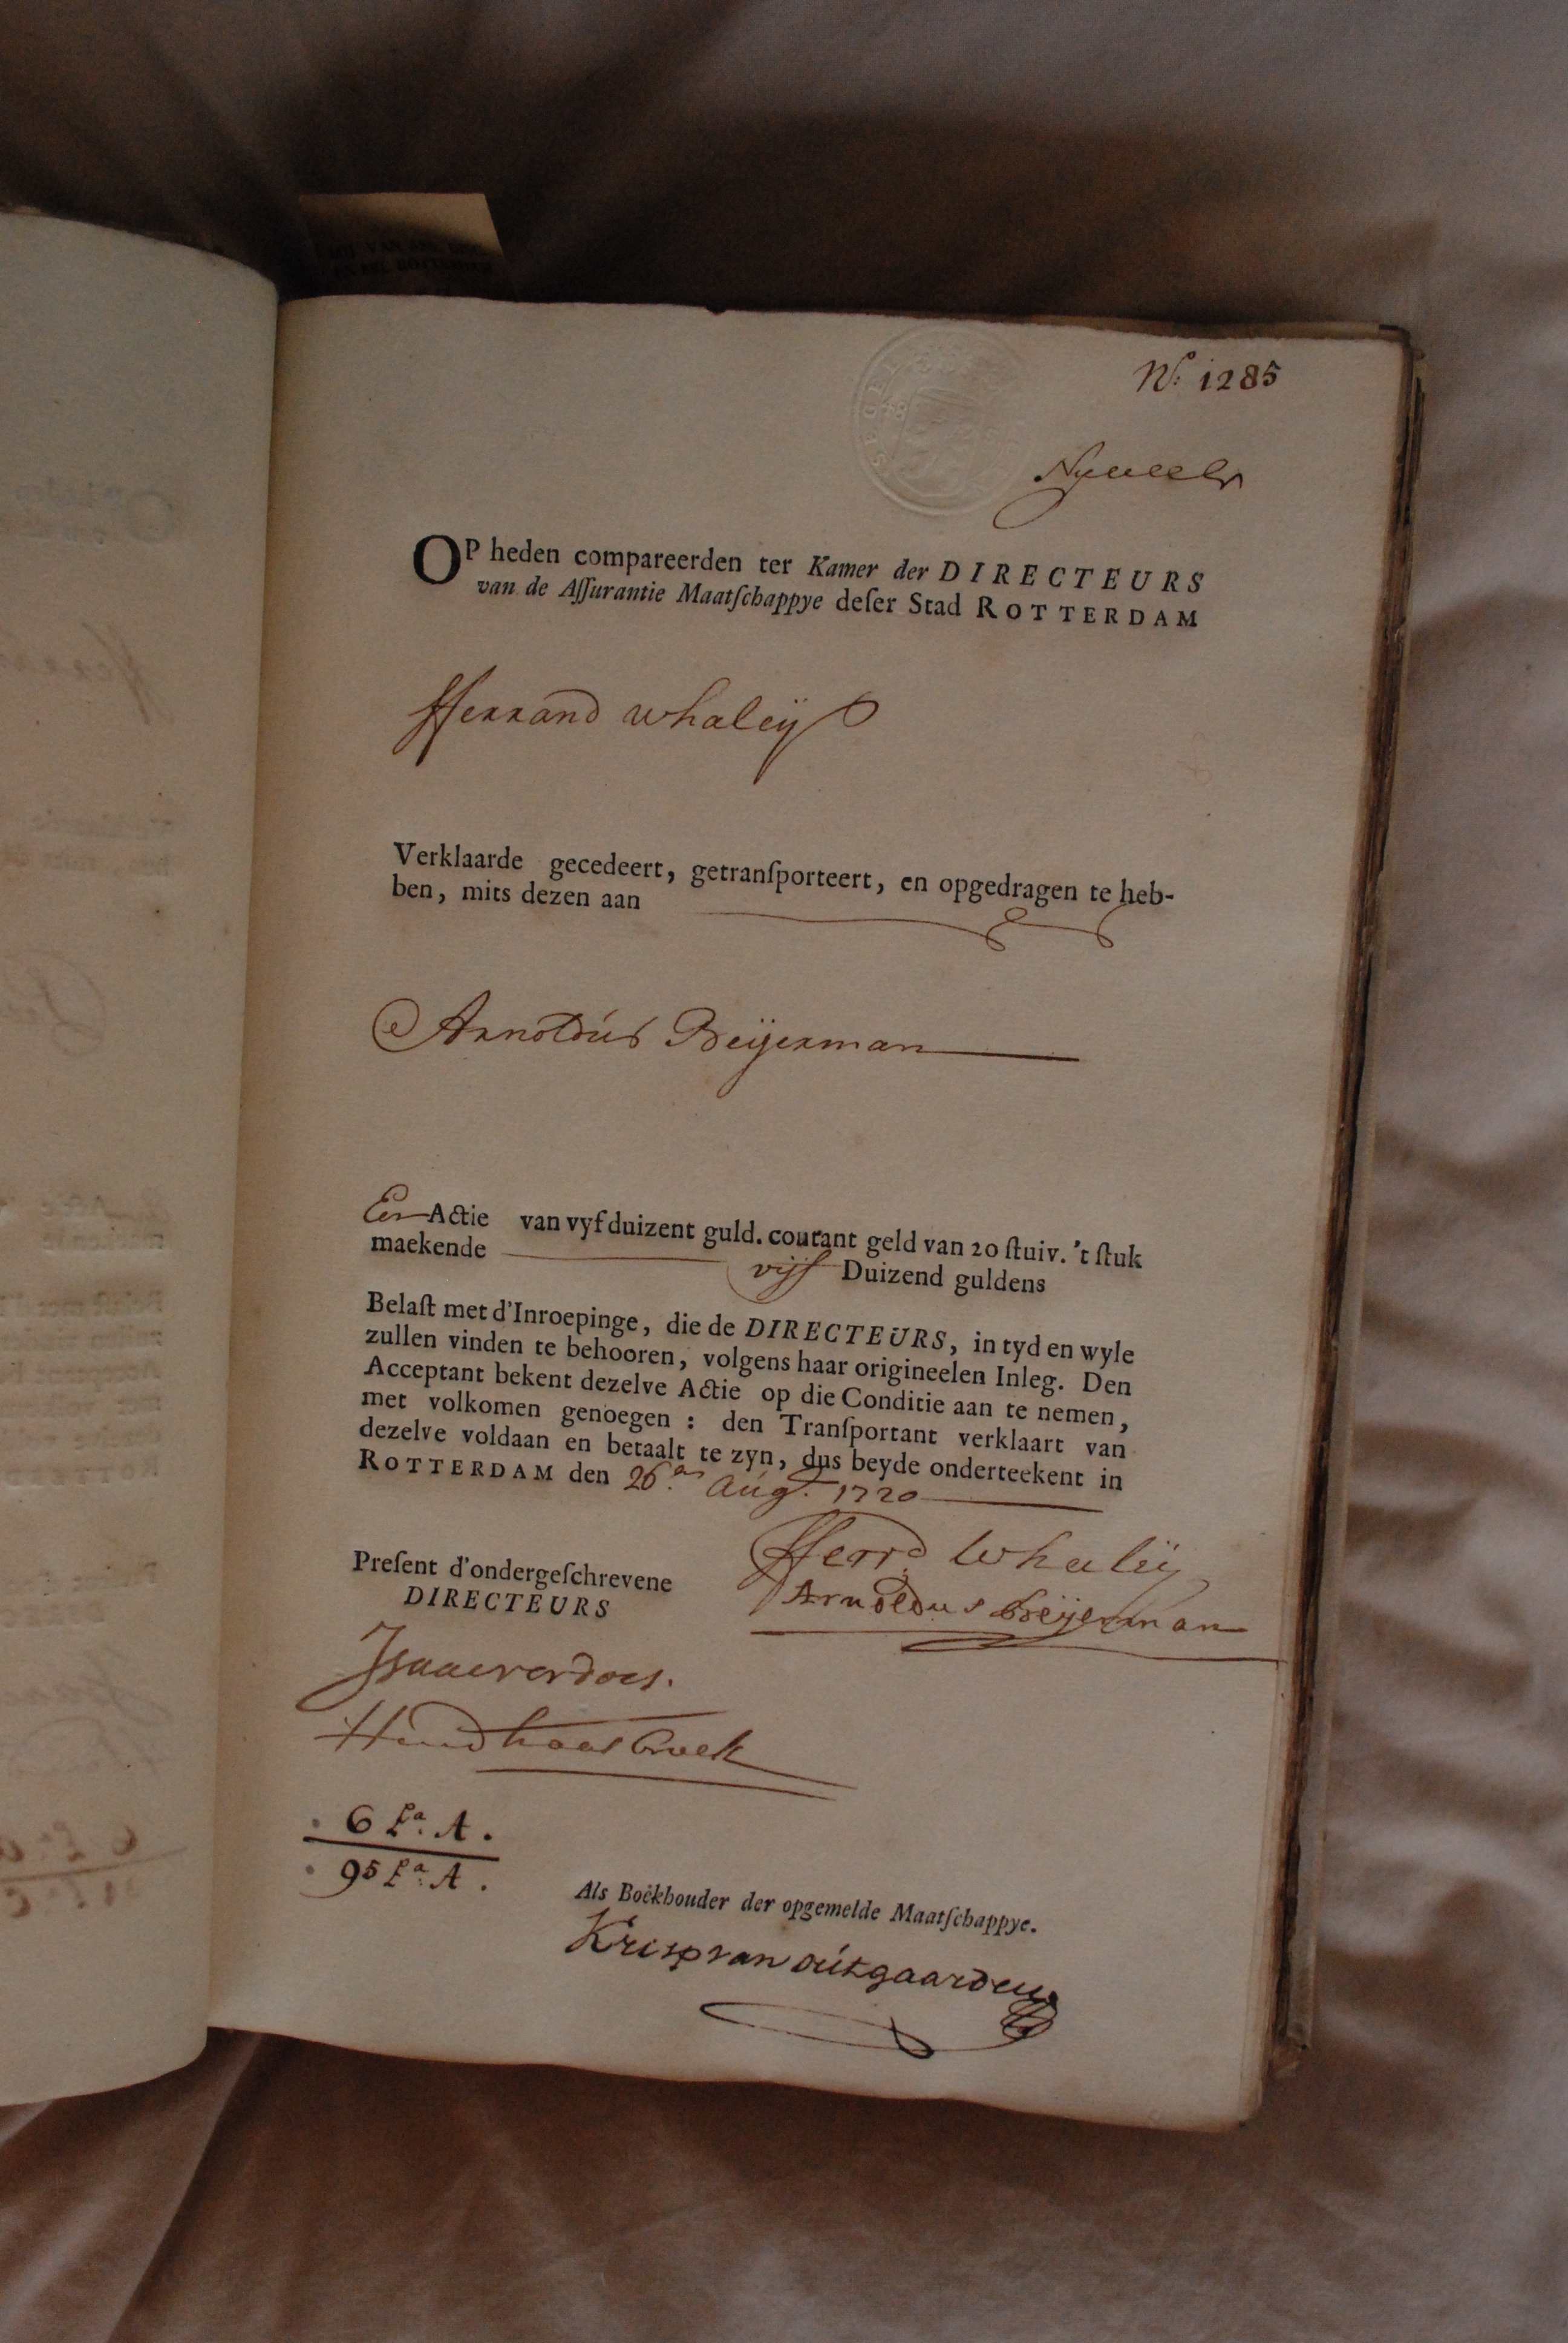 No. 1285
OP heden compareerden ter Kamer der DIRECTEURS
van de Aſſurantie Maatſchappye deſer Stad ROTTERDAM
fferrand whaleÿ
Verklaarde gecedeert, getranſporteert, en opgedragen te heb-
ben, mits dezen aan
Arnoldús Beÿerman
Een Actie van vyfduizent guld. courant geld van 20 ſtuiv. 't ſtuk
maekende vijf Duizend guldens
Belaſt met d'Inroepinge, die de DIRECTEURS, in tyd en wyle
zullen vinden te behooren, volgens haar origineelen Inleg. Den
Acceptant bekent dezelve Actie op die Conditie aan te nemen,
met volkomen genoegen : den Tranſportant verklaart van
dezelve voldaan en betaalt te zyn, dus beyde onderteekent in
ROTTERDAM den 26.en Aúg.t 1720
fferrd. Whaleÿ
Arnoldus beÿerman
Preſent d'ondergeſchrevene
DIRECTEURS
Isaac verdoes.
Hend haesbroek
6 La. A.
95 La. A.
Als Boekhouder der opgemelde Maatſchappye.
Krisp van oútgaarden